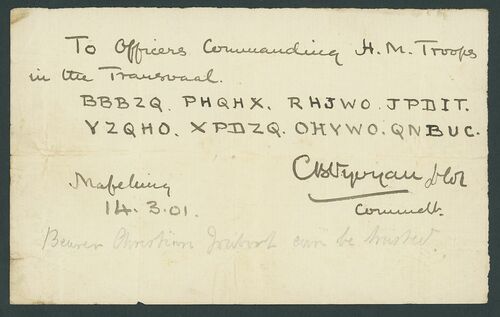 To Officers Commanding H.M. Troops
in the Transvaal.
BBBZQ. PHQHX. RHJWO. JPDIT.
YZQHO. XPDZQ. OHYWO. QNBUC.
CBVyvyan
Mafeking
14.3.01.
Bearer Christian Joubert can be trusted.